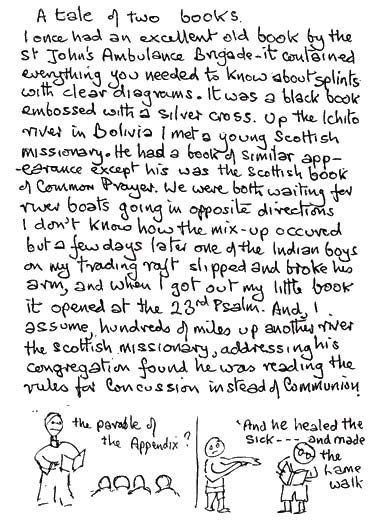 A tale of two books.
I once had an excellent old book by the
St John's Ambulance Brigade - it contained
everything you needed to know about splints
with clear diagrams. It was a black book
embossed with a silver cross. Up the Ichilo
river in Bolivia I met a young Scottish
missionary. He had a book of similar app-
-earance except his was the Scottish book
of Common Prayer. We were both waiting for
river boats going in opposite directions
I don't know how the mix-up occured
but a few days later one of the Indian boys
on my trading raft slipped and broke his
arm, and when I got out my little book
it opened at the 23rd Psalm. And, I
assume, hundreds of miles up another river
the Scottish missionary, addressing his
congregation found he was reading the
rules for Concussion instead of Communion!
the parable of
the Appendix?
'And he healed the
sick --- and made
the
Lame
walk